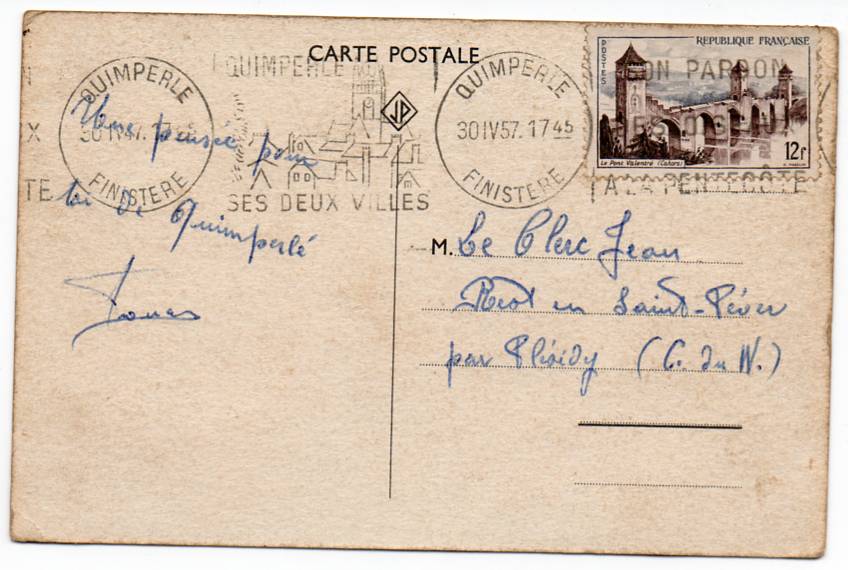 CARTE POSTALE
REPUBLIQUE FRANÇAISE
POSTES
Le Pont Valentré (Cahors)
12f
QUIMPERLE
30 IV 57. 17
FINISTERE
QUIMPERLE
SES DEUX VILLES
JP
QUIMPERLE
30 IV 57. 17 45
FINISTERE
SON PARDON
DES OISEAUX
A LA PENTECOTE
Une pensée pour
toi de Quimperlé
M. Le Clerc Jean
en Saint-Péver
par (C. du N.)